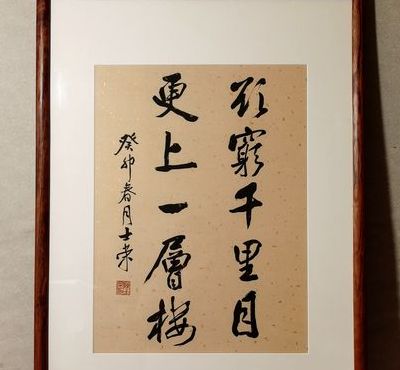 欲窮千里目
更上一層樓
癸卯春月士榮